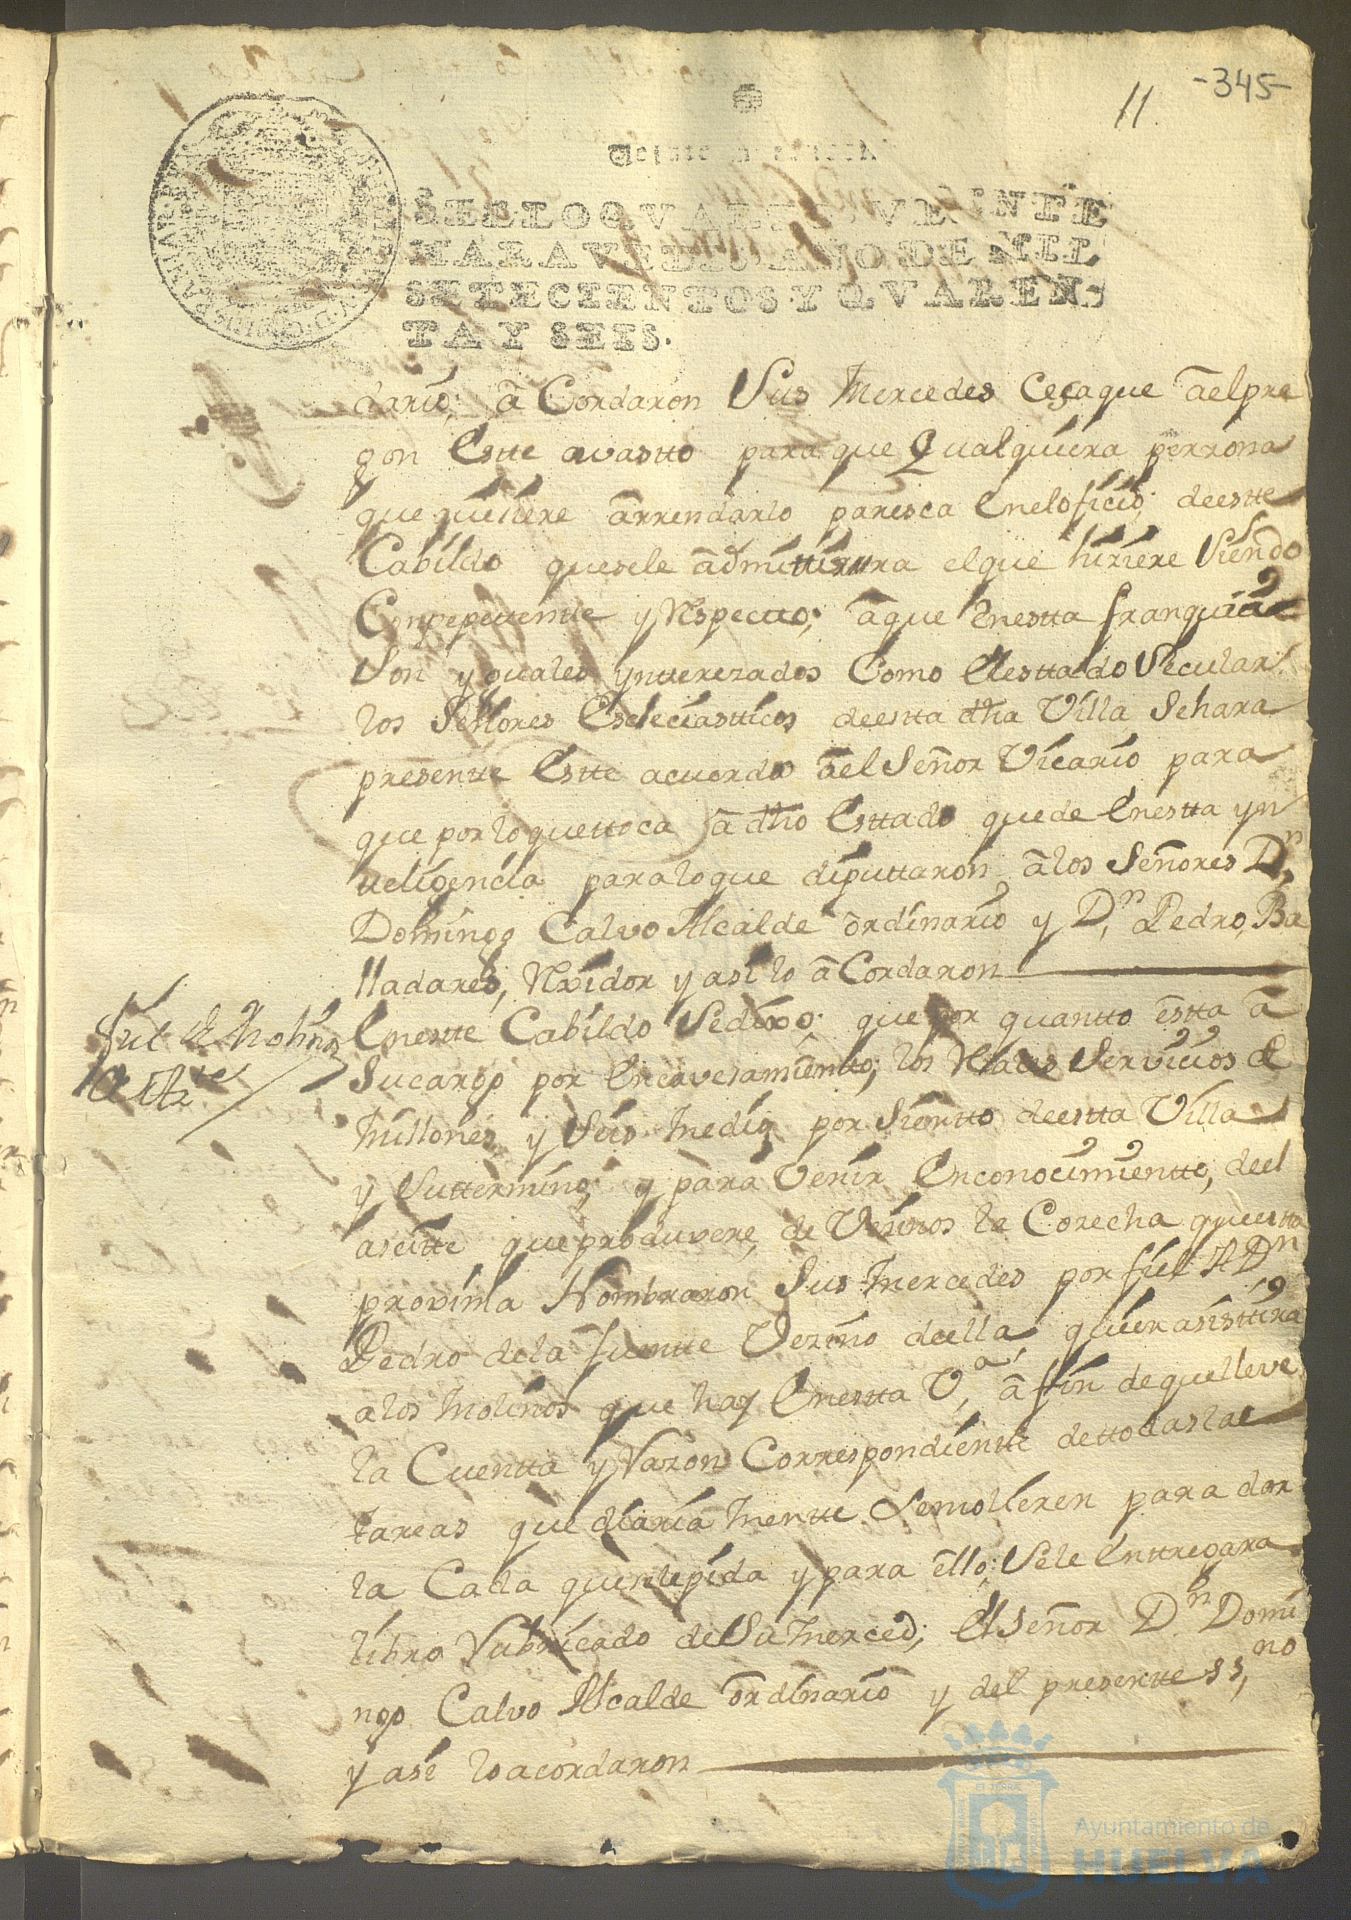 -345-
11
SELLO QVARTO, VEINTE
MARAVEDIS, AÑO DE MIL
SETECIENTOS Y QVAREN-
TA Y SEIS.
dario; â Cordaron Sus Mercedes Cesaque âelpre
gon Estte avastto paraque Qualquiera perzona
que quisiere ârrendarlo paresca Enelofício deestte
Cabildo quesele âdmittira elque hiziere Siendo
Conpetentte y Respectto; âque Enestta franquicia
Son yguales ynterezados Como Elesttado Secular
los Señores Eclecíastticos deesta dha Villa Sehara
presentte Estte acuerdo âel Señor Vícarío para
que porlo quettoca â dho Esttado quede Enestta yn
teligencía paraloque díputtaron âlos Señores Dn
Domingo Calvo Alcalde ôrdinario y Dn Pedro Ba
lladares, Rexidor y así lo â Cordaron
fiel de Molinos
de Azte
Enestte Cabíldo Sedixo, que por quantto êstta â
Sucargo por Encavesamientto, los Rs Servicios de
Millones y Sus Medio por Sientto deestta Villa
y Suttermíno; y para Venir Enconocimientto, deel
aseitte que produxere, de Vezinos la Cosecha questta
proxima Nombraron Sus Mercedes por fiel A Dn
Pedro dela Fuentte Vezino deella, quien asisttira
alos Molinos que hay Enestta Va, â fin dequelleve
la Cuentta y Razon Correspondientte dettodaslas
tareas que díaría Mentte Semolieren para dar
la Cala quesele pida y para êllo; Sele Entregara
libro Rubricado deSu Merced; El Señor Dn Domí
ngo Calvo Alcalde ôrdinarío y del presentte ssno,
y así lo acordaron
Ayuntamiento de
HUELVA